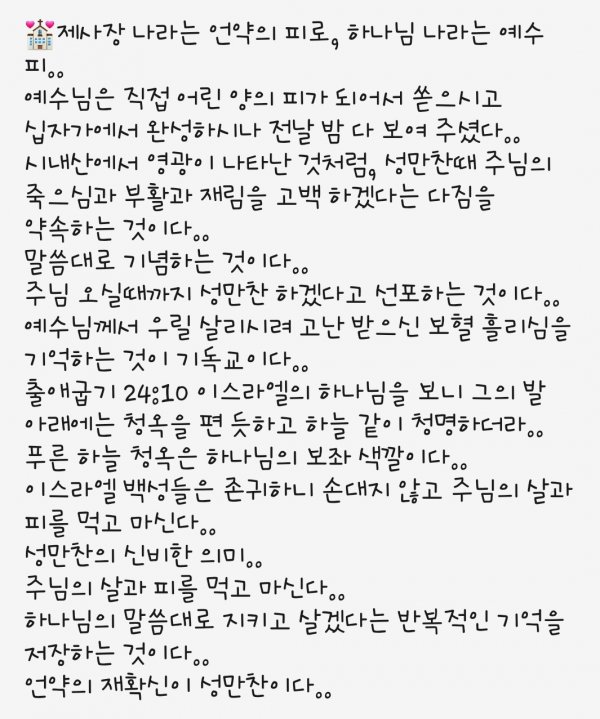 💒제사장 나라는 언약의 피로, 하나님 나라는 예수
피。。
예수님은 직접 어린 양의 피가 되어서 쏟으시고
십자가에서 완성하시나 전날 밤 다 보여 주셨다。。
시내산에서 영광이 나타난 것처럼, 성만찬때 주님의
죽으심과 부활과 재림을 고백 하겠다는 다짐을
약속하는 것이다。。
말씀대로 기념하는 것이다。。
주님 오실때까지 성만찬 하겠다고 선포하는 것이다。。
예수님께서 우릴 살리시려 고난 받으신 보혈 흘리심을
기억하는 것이 기독교이다。。
출애굽기 24:10 이스라엘의 하나님을 보니 그의 발
아래에는 청옥을 편 듯하고 하늘 같이 청명하더라。。
푸른 하늘 청옥은 하나님의 보좌 색깔이다。。
이스라엘 백성들은 존귀하니 손대지 않고 주님의 살과
피를 먹고 마신다。。
성만찬의 신비한 의미。。
주님의 살과 피를 먹고 마신다。。
하나님의 말씀대로 지키고 살겠다는 반복적인 기억을
저장하는 것이다。。
언약의 재확신이 성만찬이다。。